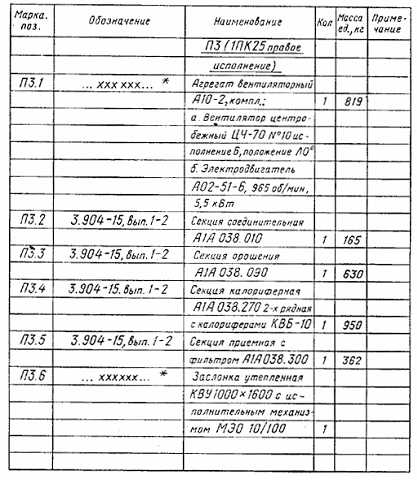 Марка. поз. Обозначение Наименование Кол Масса ед., кг Приме- чание
П3 (1ПК25 правое
исполнение)
П3.1 ...xxx xxx...* Агрегат вентиляторный
А10-2, компл.; 1 819
а. Вентилятор центро-
бежный ЦЧ-70 №10 ис-
полнение 6, положение Л0°
б. Электродвигатель
АО2-51-6, 965 об/мин,
5,5 кВт
П3.2 3.904-15, вып. 1-2 Секция соединительная
А1А 038.010 1 165
П3.3 3.904-15, вып. 1-2 Секция орошения
А1А 038.090 1 630
П3.4 3.904-15. вып. 1-2 Секция калориферная
А1А 038.270 2-х рядная
с калориферами КВБ-10 1 950
П3.5 3.904-15, вып. 1-2 Секция приемная с
фильтром А1А 038.300 1 362
П3.6 ...xxxxxx...* Заслонка утепленная
КВУ 1000×1600 с ис-
полнительным механиз-
мом МЭО 10/100 1